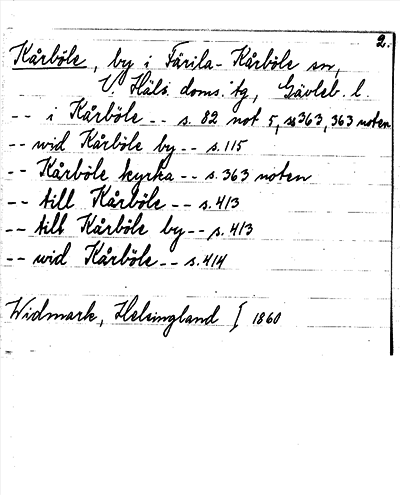 2.
Kårböle, by i Färila-Kårböle sn,
V. Häls. doms. tg, Gävleb. l.
-- i Kårböle -- s. 82 not 5, s 363, 363 noten
-- wid Kårböle by -- s. 115
-- Kårböle kyrka -- s. 363 noten
-- till Kårböle -- s. 413
-- till Kårböle by -- s. 413
-- wid Kårböle -- s. 414
Widmark, Helsingland I 1860